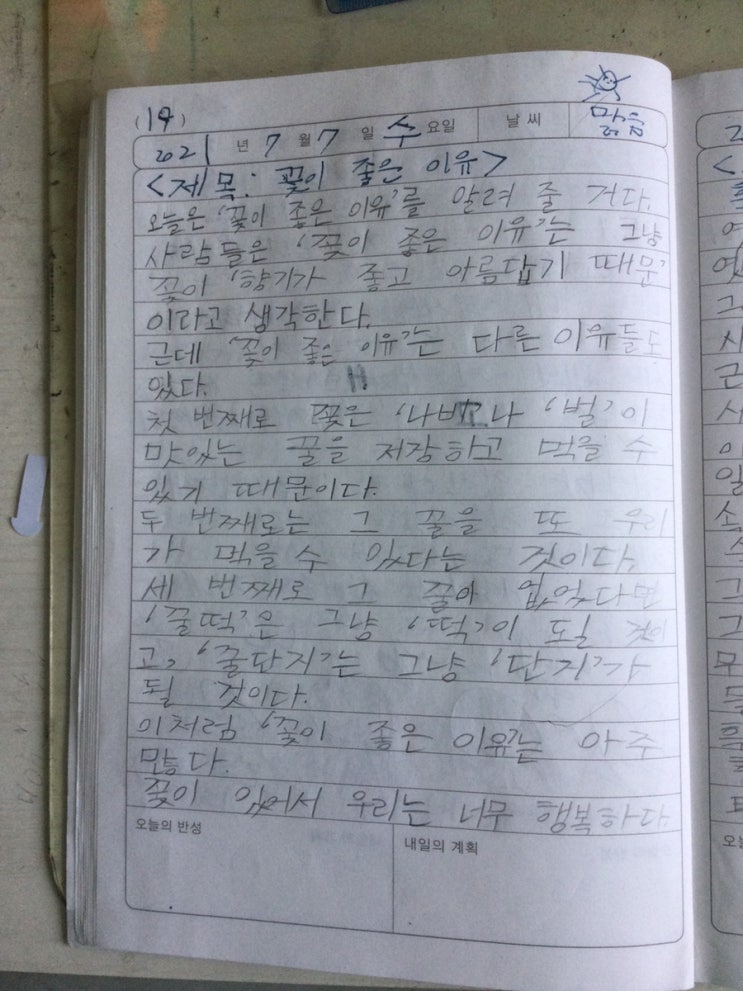 (14)
2021 년 7 월 7 일 수 요일 날씨 맑음
<제목: 꽃이 좋은 이유>
오늘은 '꽃이 좋은 이유'를 알려 줄 거다.
사람들은 '꽃이 좋은 이유'는 그냥
꽃이 '향기가 좋고 아름답기 때문'
이라고 생각한다.
근데 '꽃이 좋은 이유'는 다른 이유들도
있다.
첫 번째로 꽃은 '나비'나 '벌'이
맛있는 꿀을 저장하고 먹을 수
있기 때문이다.
두 번째로는 그 꿀을 또 우리
가 먹을 수 있다는 것이다.
세 번째로 그 꿀이 없었다면
'꿀떡'은 그냥 '떡'이 될 것이
고, '꿀단지'는 그냥 '단지'가
될 것이다.
이처럼 '꽃이 좋은 이유'는 아주
많다.
꽃이 있어서 우리는 너무 행복하다
오늘의 반성
내일의 계획